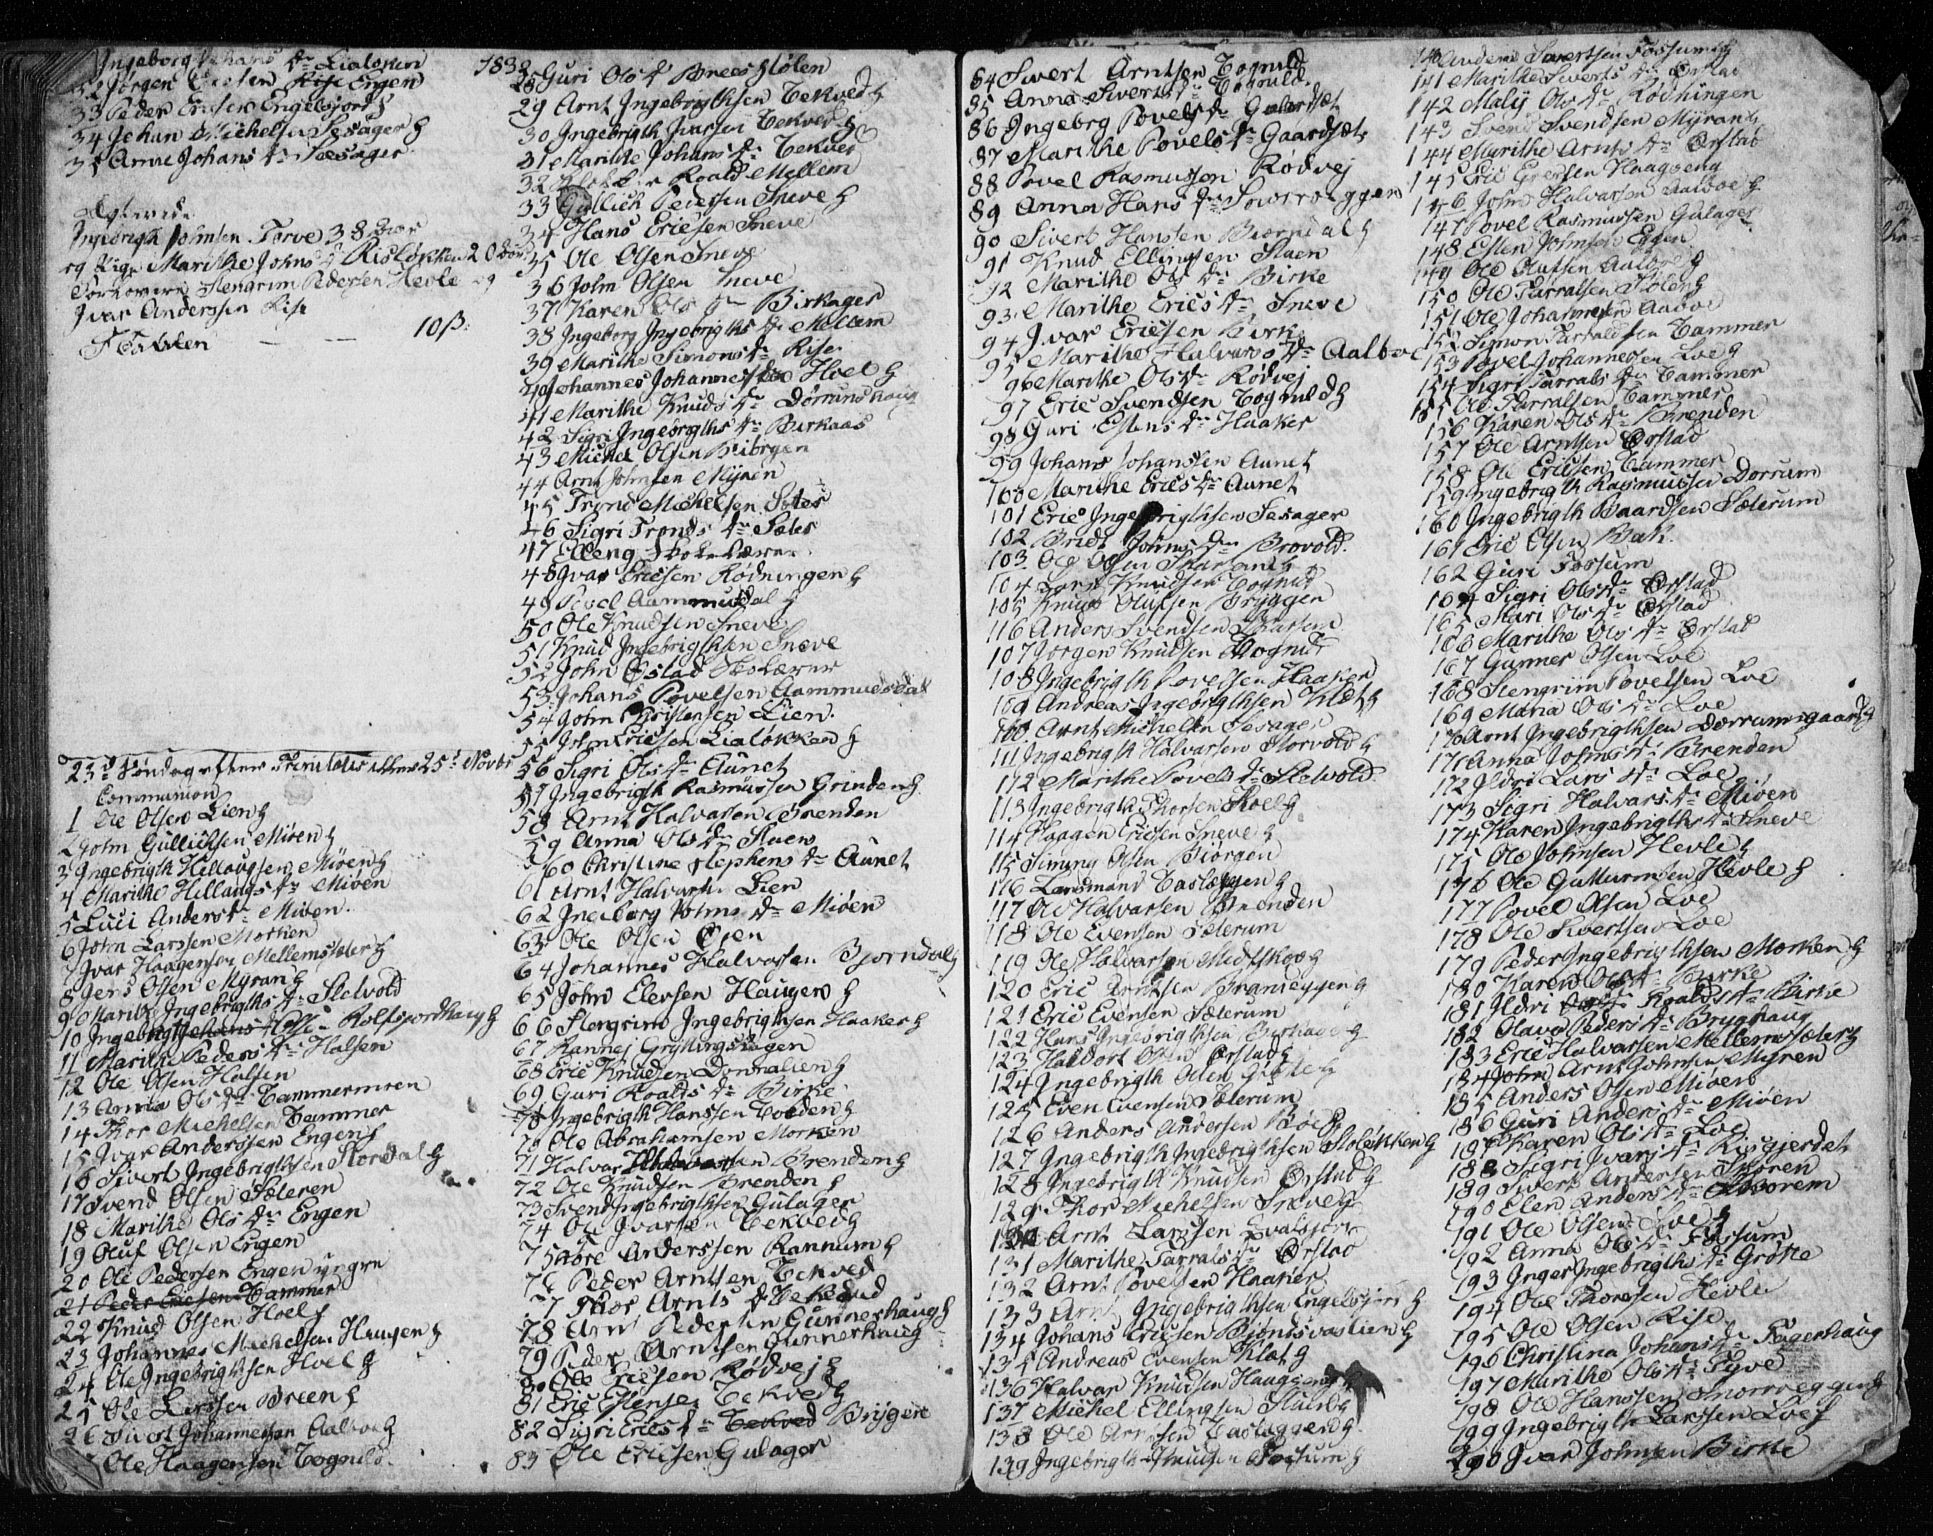 Ingeborg Johans dr Lialøkken
32 Jørgen Ericsen Rise Engen
33 Peder Ericsen Engelsjord h
34 Johan Michelsen Sesager h
35 Anne Johans dr Sesager
Ægtevide
Ingebrigth Johnsen Torve 38 Aar
og Pige Marithe Johns dr Risløkken 20 Aar
Forlovere Stengrim Pedersen Hevle og
Ivar Anderssen Rise
Tavlen — — 10 β:
23de Søndag efter Trinitatis eller 25de Novbr
Communion
1 Ole Olsen Lien h
2 John Gullichsen Miøen h
3 Ingebrigth Hillaugsen Miøen h
4 Marithe Hillaugs dr Miøen
5 Luci Anders dr Miøen
6 John Larssen Morken
7 Ivar Haagensen Mellemsæter h
8 Jens Olsen Myran h
9 Marithe Ingebrigths dr Stelvold
10 Ingeborg Johans dr Rolfsjordhaug h
11 Marithe Peders dr Halsen
12 Ole Olsen Halsen
13 Anna Ols dr Tammermoen
14 Thor Michelsen Tammer
15 Ivar Anderssen Engen h
16 Sivert Ingebrigthsen Stordal h
17 Svend Olsen Sæteren
18 Marithe Ols dr Engen
19 Oluf Olsen Engen
20 Ole Pedersen Engen yngre
21 Peder Ericsen Tammer
22 Knud Olsen Hoel h
23 Johannes Michelsen Haugen h
24 Ole Ingebrigthsen Hoel h
25 Ole Larssen Breen h
26 Sivert Johannessen Aalboe h
Ole Haagensen Tognild
1832
28 Guri Ols dr Breesstølen
29 Arnt Ingebrigthsen Tekved h
30 Ingebrigth Ivarsen Tekved h
31 Marithe Johans dr Tekved
32 Roald Mellem
33 Gullich Pedersen Sneve h
34 Hans Ericsen Sneve
35 Ole Olsen Sneve
36 John Olsen Sneve
37 Karen Ols dr Birkager
38 Ingeborg Ingebrigths dr Mellem
39 Marithe Simons dr Rise
40 Johannes Johannessen Hoel h
41 Marithe Knuds dr Dørrumshaug
42 Sigri Ingebrigths dr Birkaas
43 Michel Olsen Biørgen
44 Arnt Johnsen Myren
45 Trond Michelsen Sæter
46 Sigri Tronds dr Sæter
47 Elleng Skolelærer
48 Ivar Ericsen Rødningen h
49 Povel Aammusdal h
50 Ole Knudsen Sneve
51 Knud Ingebrigthsen Sneve
52 John Østad Skolærer
53 Johans Povelsen Aammusdal
54 John Christensen Lien
55 John Ericsen Lialøkken h
56 Sigri Ols dr Aunet
57 Ingebrigth Rasmussen Grinden h
58 Arnt Halvarsen Brenden
59 Anna Ols dr Staen
60 Christine Stephens dr Aunet
61 Arnt Halvarsen Lien
62 Ingeborg Johns dr Miøen
63 Ole Olsen Øien
64 Johannes Halvarsen Bjørndal h
65 John Elensen Haugen h
66 Stengrim Ingebrigthsen Haaker h
67 Rannej Gryttingshagen
68 Eric Knudsen Donnalien h
69 Guri Roalds dr Birke
70 Ingebrigth Hanssen Tørden h
70 Ole Abrahamsen Morken
71 Halvar Halvarsen Brenden h
72 Ole Knudsen Brenden h
73 Svend Ingebrigthsen Gulager
74 Ole Ivarsen Tekved h
75 Tore Anderssen Rannum h
76 Peder Arntsen Tekved
77 Thor Arnts dr Tekved
78 Arnt Pedersen Gunnerhaug h
79 Peder Arntsen Gunnerhaug
80 Ole Ericsen Rødvej h
81 Eric Estensen Tekved h
82 Sigri Erics dr Tekved Brygen
83 Ole Ericsen Gulager
84 Sivert Arntsen Tognild
85 Anna Siverts dr Tognild
86 Ingeborg Povels dr Gaardsæt
87 Marithe Povels dr Gaardsæt
88 Povel Rasmussen Rødvej
89 Anna Hans dr Snorroeggen
90 Sivert Hansen Bjørndal h
91 Knud Ellingsen Staen
92 Marithe Ols dr Birke
93 Marithe Erics dr Sneve
94 Ivar Ericsen Birke
95 Marithe Halvars dr Aalboe
96 Marithe Ols dr Rødvej
97 Eric Svendsen Tognild h
98 Guri Estens dr Haaker
99 Johans Johanssen Aunet
100 Marithe Erics dr Aunet
101 Eric Ingebrigthsen Sesager
102 Bridt Johns dr Brovold
103 Ole Olsen
104 Lars Knudsen Tognild
105 Knud Olufsen Bryggen
116 Anders Svendsen
107 Jørgen Knudsen Tognild
108 Ingebrigth Povelsen Haaker
109 Andreas Ingebrigthsen Klæt h
110 Arnt Michelsen Sesager
111 Ingebrigth Halvarsen Storvold h
112 Marithe Povels dr Stelvold
113 Ingebrigth Thorsen Hoel h
114 Haagen Ericsen Sneve h
115 Simon Olsen Biørgen
116 Landmand Tastæggen h
117 Ole Halvarsen Brenden
118 Ole Evensen Sæterum
119 Ole Halvarsen Midtskog h
120 Eric Arntsen Brameggen h
121 Eric Evensen Sæterum
122 Hans Ingebrigthsen Birkager h
123 Haldort Olsen Ørstad h
124 Ingebrigth Olsen Grøte h
125 Even Evensen Sæterum
126 Anders Andersen Boe h
127 Ingebrigth Ingebrigthsen Stoløkken h
128 Ingebrigth Knudsen Ørstad h
129 Thor Michelsen Sneve h
130 Arnt Larssen
131 Marithe Tarrals dr Ørstad
132 Arnt Povelsen Haaker
133 Arnt Ingebrigthsen Engelsjord h
134 Johans Ericsen Bjøndsvaslien h
135 Andreas Evensen Klæt h
136 Halvar Knudsen Haugen h
137 Michel Ellingsen Staen h
138 Ole Arntsen Tastæggen h
139 Ingebrigth Knudsen Fossum h
140 Anders Sivertsen Fossum h
141 Marithe Siverts dr Ørstad
142 Malij Ols dr Rødningen
143 Svend Svendsen Myran h
144 Marithe Arnts dr Ørstad
145 Eric Haageng
146 John Halvarsen Aalboe h
147 Povel Rasmussen Gulager
148 Esten Johnsen Eggen
149 Ole Olufsen Aalboe h
150 Ole Tarralsen Stølen h
151 Ole Johannessen Aalboe
152 Simon Tarraldsen Tammer
153 Povel Johannessen Loe h
154 Sigri Tarrals dr Tammer
155 Ole Tarralsen Tammer
156 Karen Ols dr Brenden
157 Ole Arntsen Ørstad
158 Ole Ericsen Tammer
159 Ingebrigth Rasmussen Dorrum
160 Ingebrigth Baardsen Sæterum
161 Eric Olsen Bak
162 Guri Fossum
164 Sigri Ols dr Ørstad
165 Mari Ols dr Ørstad
166 Marithe Ols dr Ørstad
167 Gunner Olsen Loe
168 Stengrim Povelsen Loe
169 Maria Ols dr Loe
170 Arnt Ingebrigthsen Dorrumsgaard h
171 Anna Johns dr Brenden
172 Ildri Lars dr Loe
173 Sigri Halvars dr Miøen
174 Karen Ingebrigths dr Sneve
175 Ole Johnsen Hevle h
176 Ole Guttormsen Hevle h
177 Povel Olsen Loe
178 Ole Sivertsen Loe
179 Peder Ingebrigthsen Morken h
180 Karen Ols dr Birke
181 Ildri Roalds dr Birke
182 Olava Peders dr Bryghaug
183 Eric Halvarsen Mellemsæter h
184 John Arnt Johnsen Myren
185 Anders Olsen Miøen
186 Guri Anders dr Miøen
187 Karen Ols dr Loe
188 Sigri Ivars dr Risgjerdet
189 Sivert Andersen Skoren
190 Elen Anders dr Skorem
191 Ole Olsen Loe h
192 Anna Ols dr Fossum
193 Inger Ingebrigths dr Grøtte
194 Ole Thoresen Hevle
195 Ole Olsen Rise
196 Christina Johans dr Fagerhaug
197 Marithe Ols dr Tyve
198 Ole Hanssen Snorroeggen h
199 Ingebrigth Larssen Loe h
200 Ivar Johnsen Birke